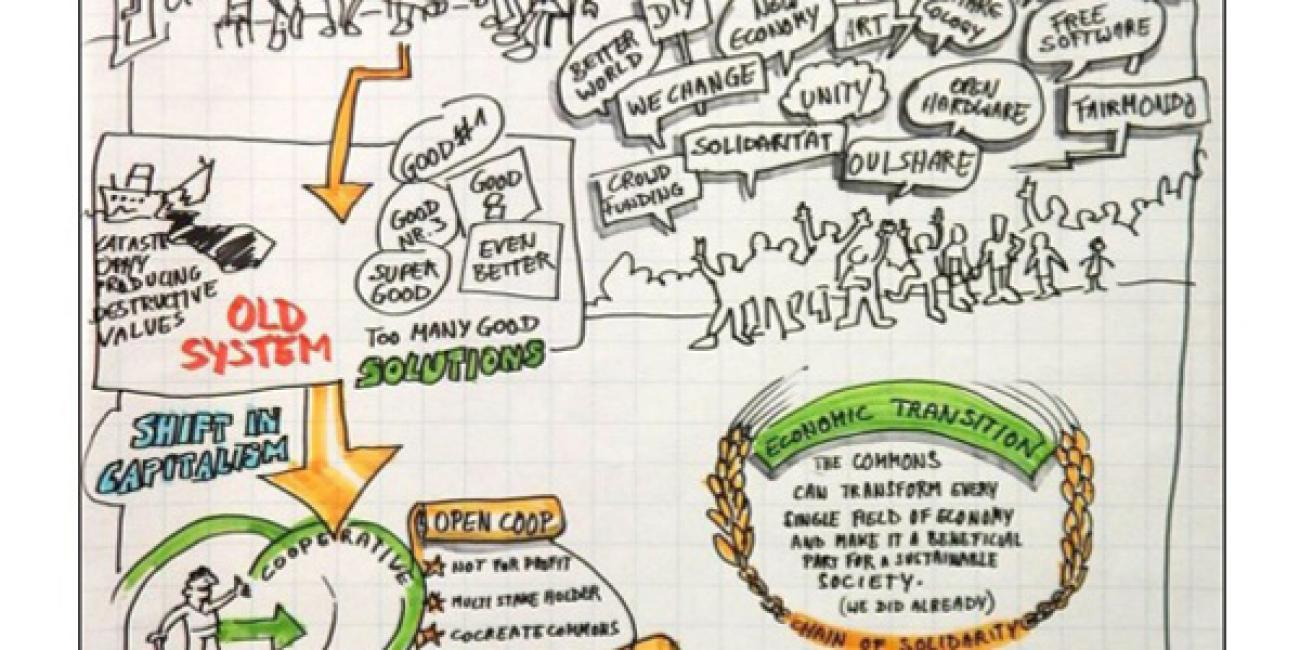 DIY
NEW
ECONOMY
ART
COLOGY
FREE
SOFTWARE
BETTER
WORLD
WE CHANGE
UNITY
OPEN
HARDWARE
FAIRMONDO
SOLIDARITAT
OUISHARE
CROWD
FUNDING
GOOD #1
GOOD
8
GOOD
NR. 3
EVEN
BETTER
SUPER
GOOD
TOO MANY GOOD
SOLUTIONS
PRODUCING
DESTRUCTIVE
VALUES
OLD
SYSTEM
SHIFT IN
CAPITALISM
COOPERATIVE
OPEN COOP
NOT FOR PROFIT
MULTI STAKE HOLDER
COCREATE COMMONS
ECONOMIC TRANSITION
THE COMMONS
CAN TRANSFORM EVERY
SINGLE FIELD OF ECONOMY
AND MAKE IT A BENEFICIAL
PART FOR A SUSTAINABLE
SOCIETY.
(WE DID ALREADY)
CHAIN OF SOLIDARITY